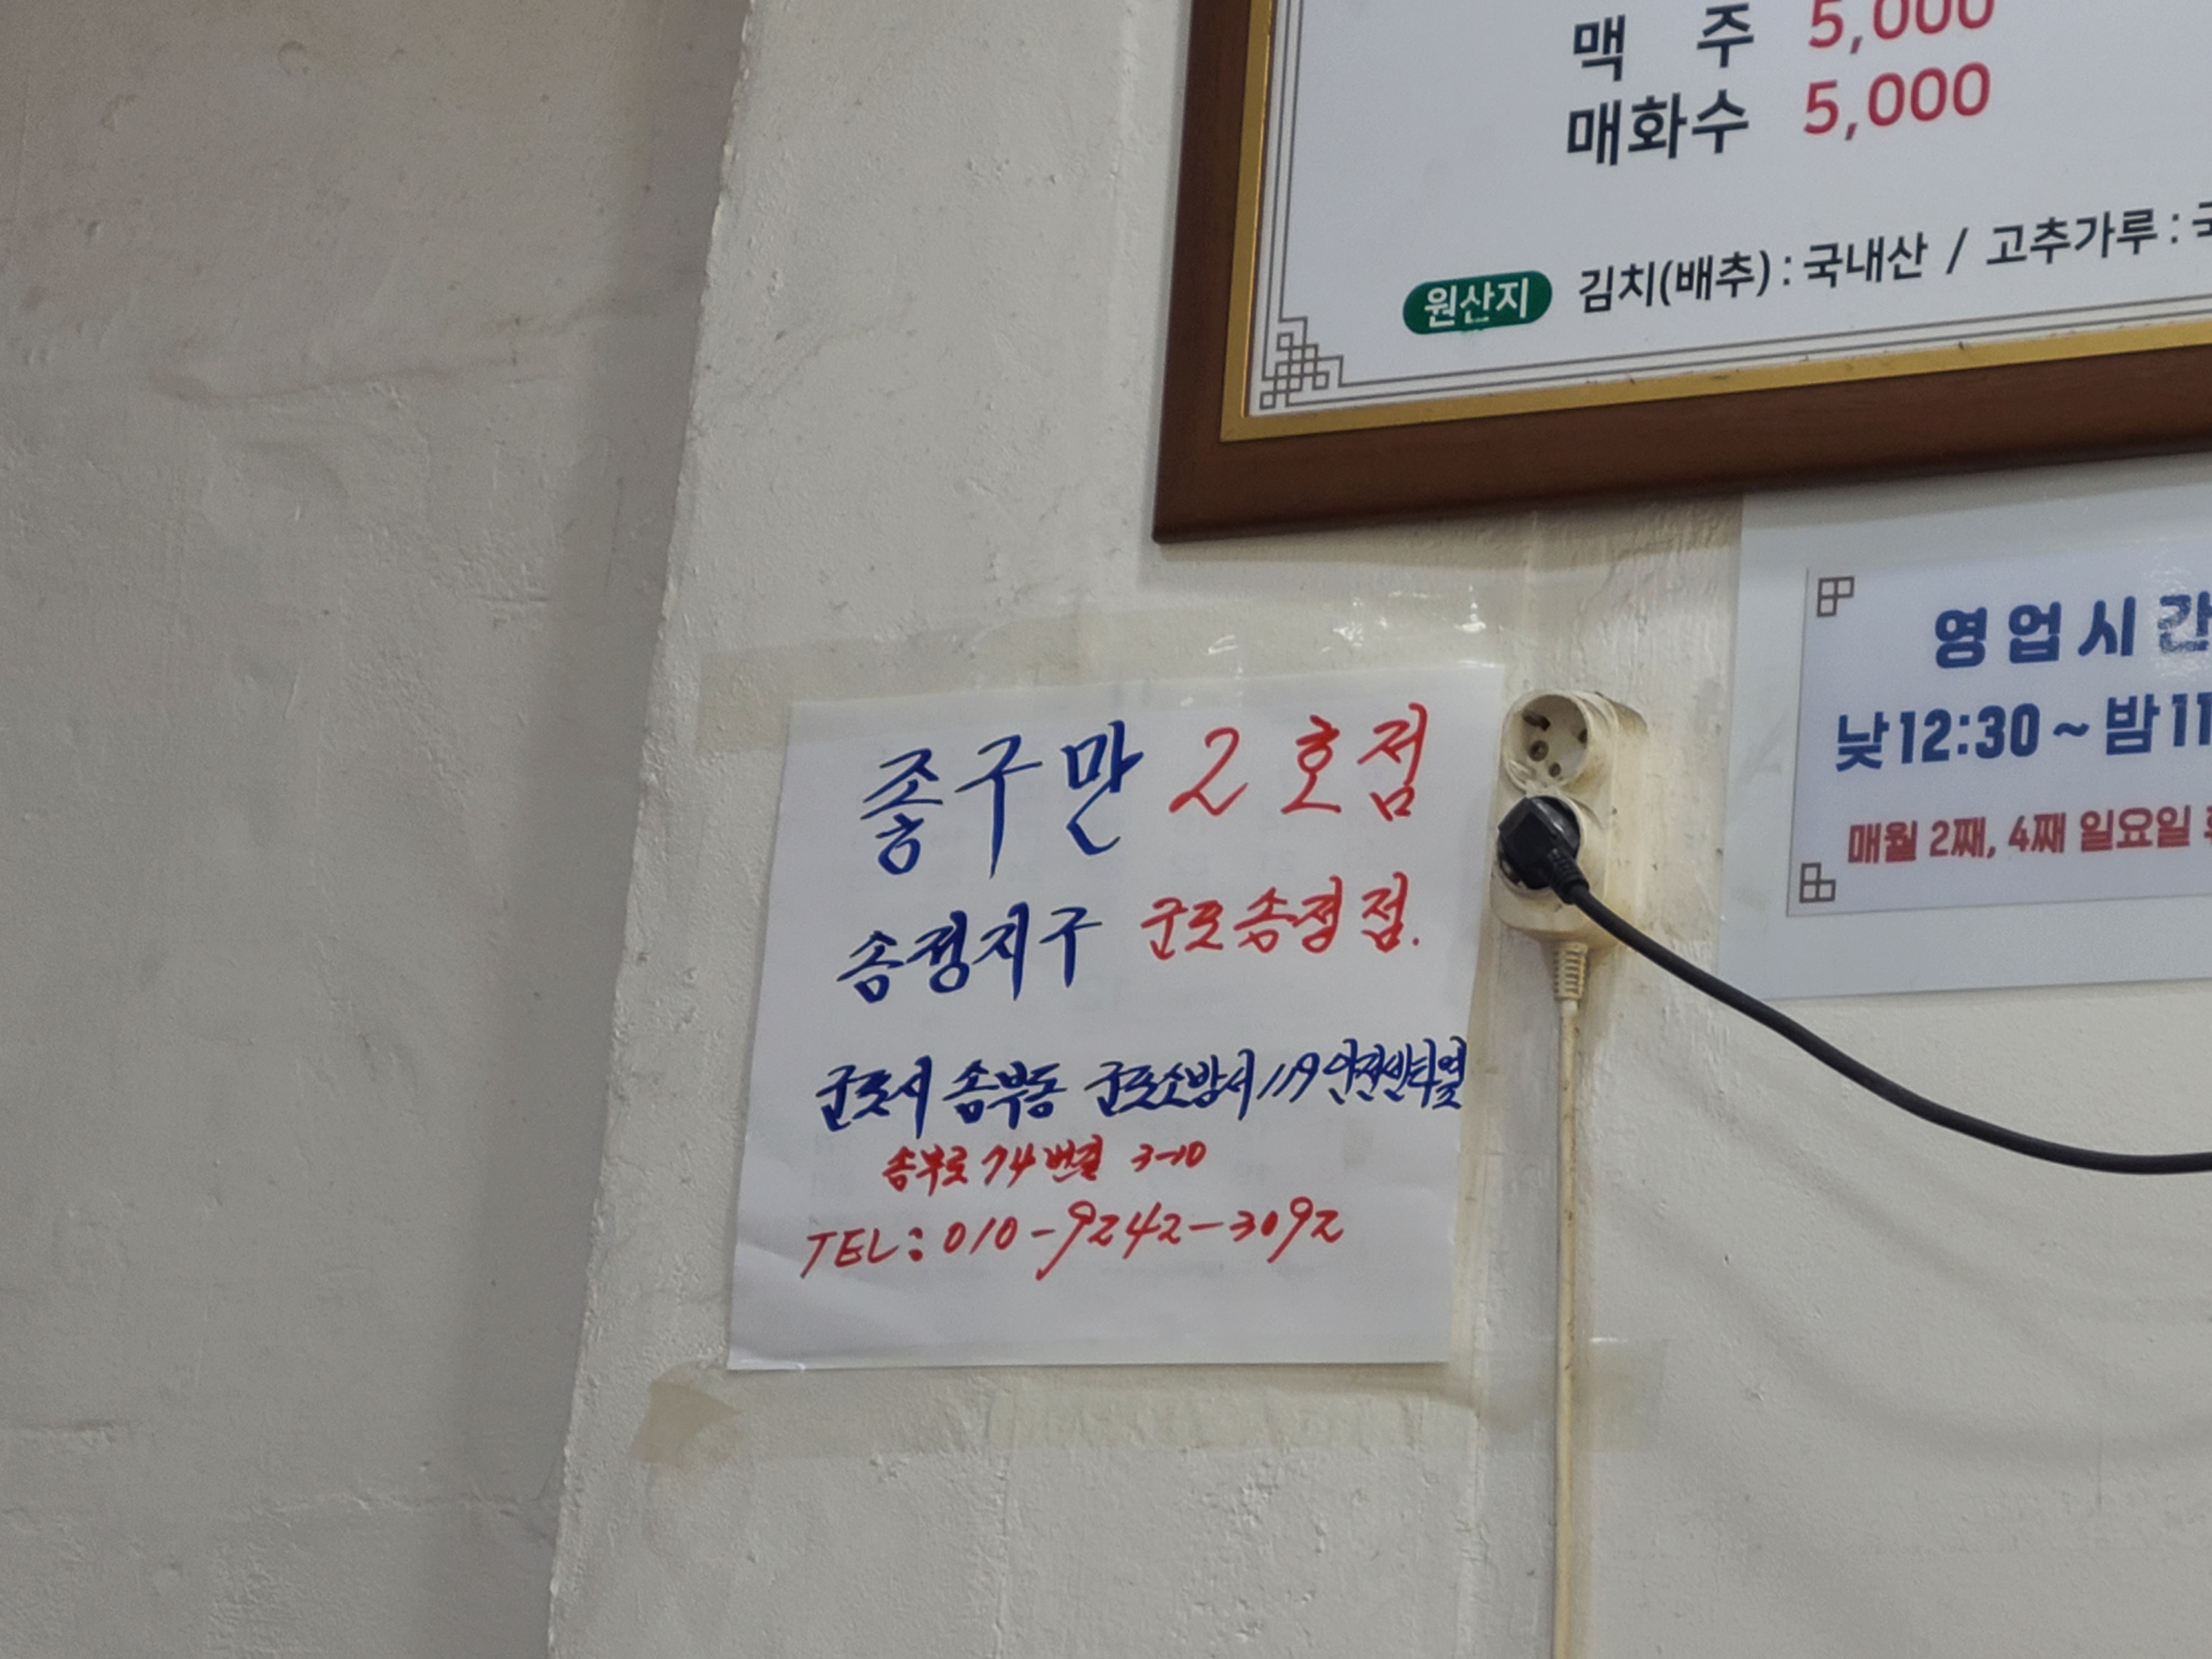 맥 주 5,000
매화수 5,000
원산지 김치(배추) : 국내산 / 고추가루 :
영업시간
낮12:30~밤11
매월 2째, 4째 일요일
좋구만 2호점
송정지구 군포송정점.
군포시 송부동 군포소방서 119안전센터옆
송부로 74번길 3-10
TEL: 010-9242-3092